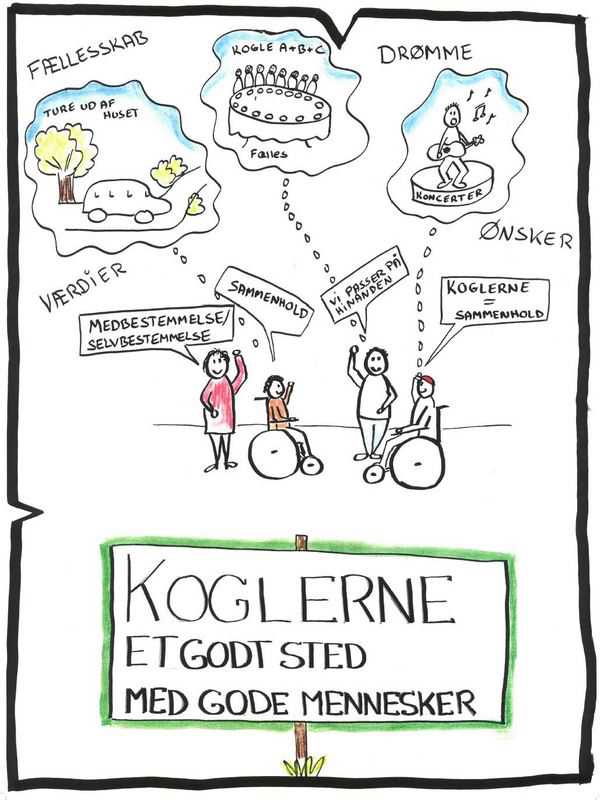 FÆLLESSKAB
TURE UD AF
HUSET
KOGLE A+B+C
Fælles
DRØMME
KONCERTER
ØNSKER
VÆRDIER
MEDBESTEMMELSE/
SELVBESTEMMELSE
SAMMENHOLD
VI PASSER PÅ
HINANDEN
KOGLERNE
=
SAMMENHOLD
KOGLERNE
ET GODT STED
MED GODE MENNESKER